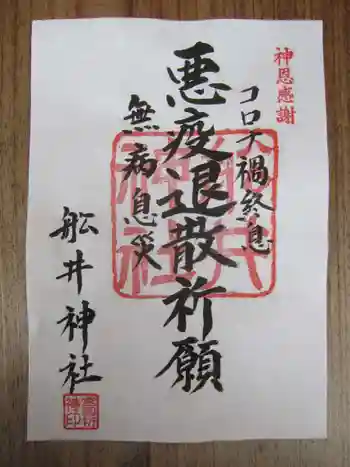 神恩感謝
コロナ禍終息
悪疫退散祈願
無病息災
舩井神社